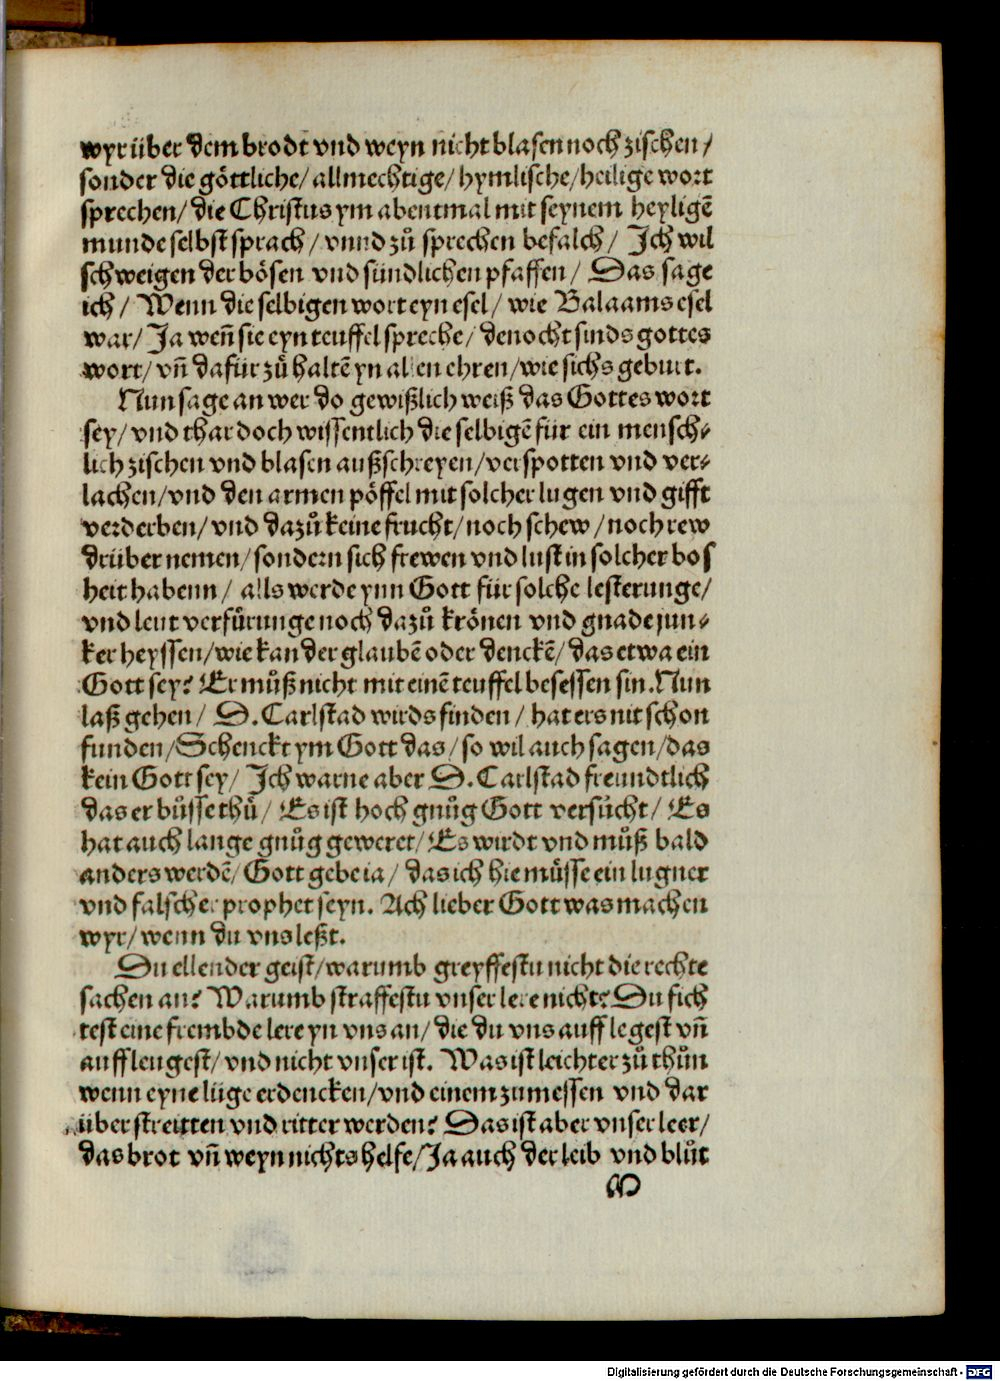 wyr über dem brodt vnd weyn nicht blasen noch zischen/
sonder die göttliche/ allmechtige/ hymlische/ heilige wort
sprechen/ die Christus ym abentmal mit seynem heyligē
munde selbst sprach/ vnnd zů sprechen befalch/ Ich wil
schweigen der bösen vnd sündlichen pfaffen/ Das sage
ich/ Wenn die selbigen wort eyn esel/ wie Balaams esel
war/ Ja weñ sie eyn teuffel spreche/ denocht sinds gottes
wort/ vñ dafür zů haltē yn allen ehren/ wie sichs geburt.
Nun sage an wer do gewißlich weiß das Gottes wort
sey/ vnd thar doch wissentlich die selbigē für ein mensch⸗
lich zischen vnd blasen außschreyen/ verspotten vnd ver⸗
lachen/ vnd den armen pöffel mit solcher lugen vnd gifft
verderben/ vnd dazů keine frucht/ noch schew/ noch rew
drüber nemen/ sondern sich frewen vnd lust in solcher bos
heit habenn/ alls werde ynn Gott für solche lesterunge/
vnd leut verfürunge noch dazů krönen vnd gnade jun⸗
ker heyssen/ wie kan der glaubē oder denckē/ das etwa ein
Gott sey? Er můß nicht mit einē teuffel besessen sin. Nun
laß gehen/ D. Carlstad wirds finden/ hat ers nit schon
funden/ Schenckt ym Gott das/ so wil auch sagen/ das
kein Gott sey/ Ich warne aber D. Carlstad freundtlich
das er bůsse thů/ Es ist hoch gnůg Gott versůcht/ Es
hat auch lange gnůg geweret/ Es wirdt vnd můß bald
anders werdē/ Gott gebe ia/ das ich hie müsse ein lugner
vnd falscher prophet seyn. Ach lieber Gott was machen
wyr/ wenn du vns leßt.
Du ellender geist/ warumb greyffestu nicht die rechte
sachen an? Warumb straffestu vnser lere nicht? Du fich
test eine frembde lere yn vns an/ die du vns auff legest vñ
auffleugest/ vnd nicht vnser ist. Was ist leichter zů thůn
wenn eyne lüge erdencken/ vnd einem zumessen vnd dar
über streitten vnd ritter werden? Das ist aber vnser leer/
das brot vñ weyn nichts helfe/ Ja auch der leib vnd blůt
Digitalisierung gefördert durch die Deutsche Forschungsgemeinschaft - DFG